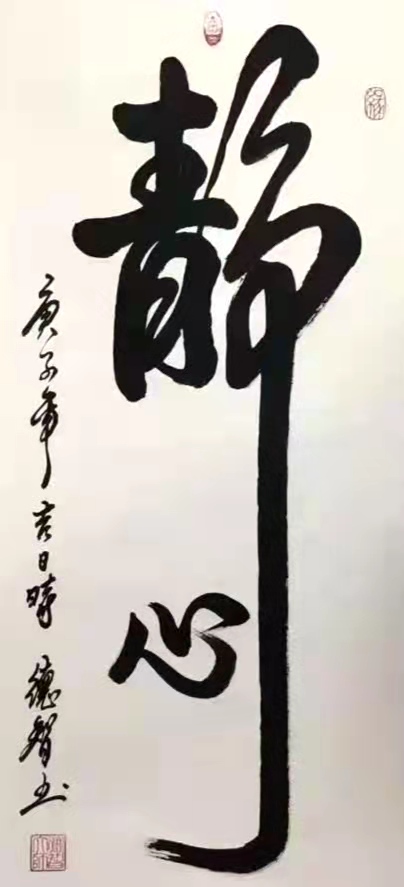 靜心
庚子年吉日時德智书